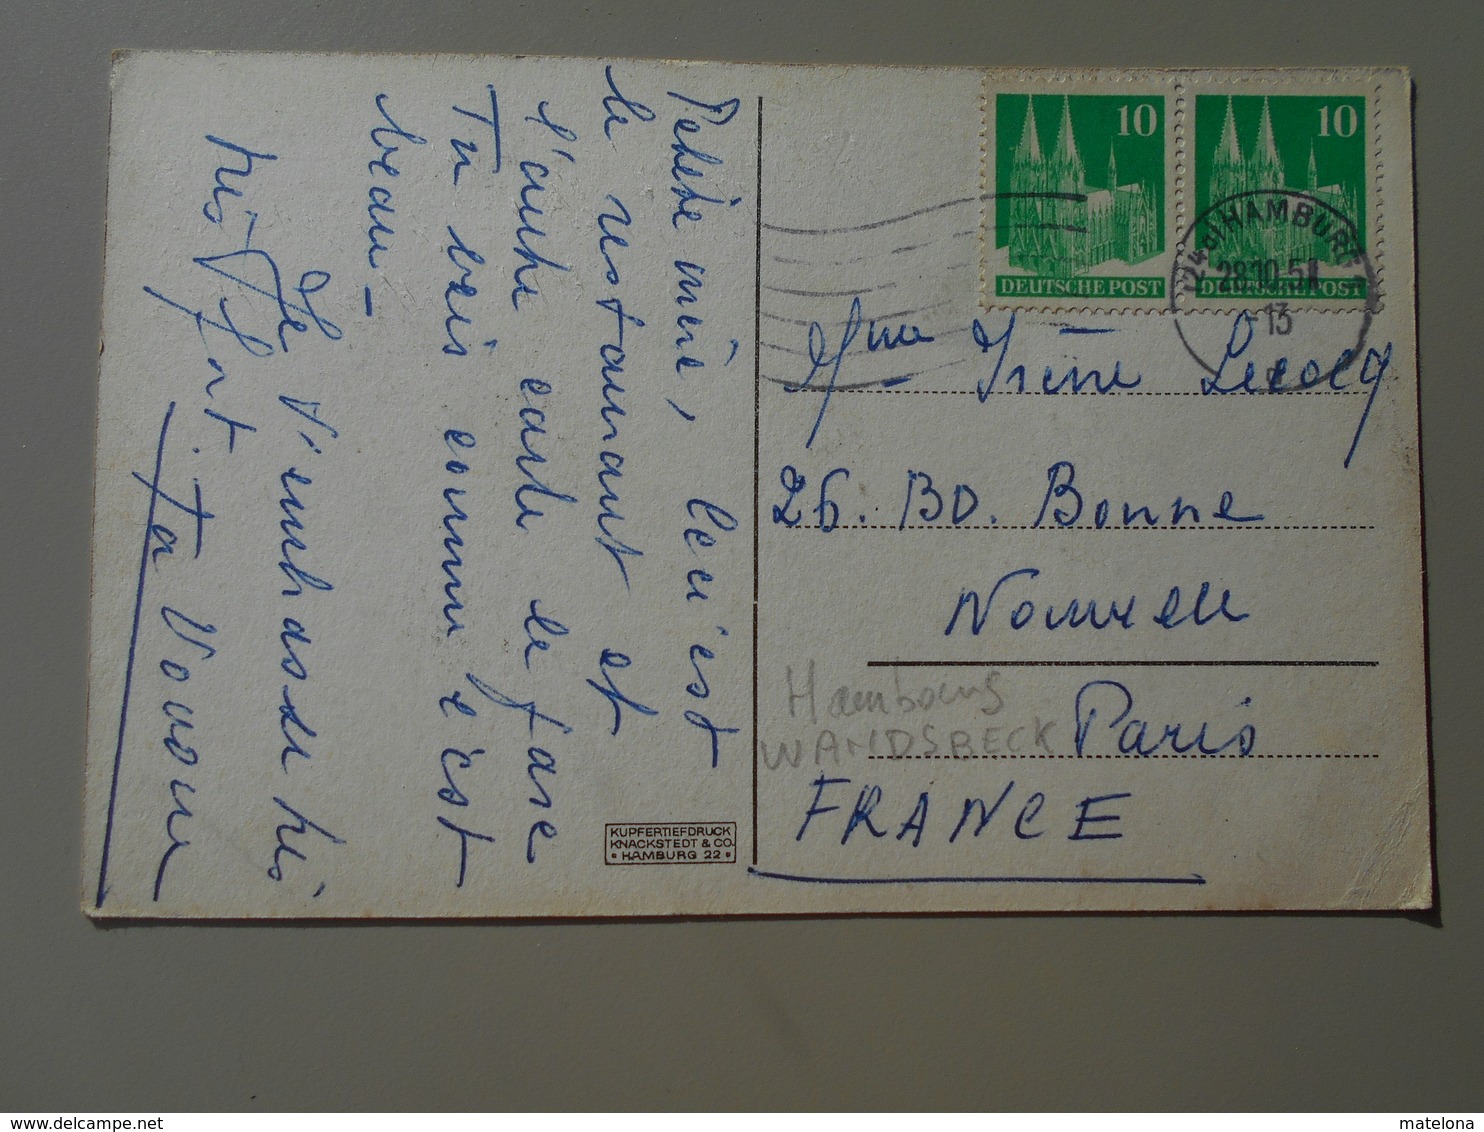 Petite mère, Ceci est
le restaurant et
l'autre carte le face
Tu vois comme c'est
beau -
Je t'embrasse très
très fort. Ta
KUPFERTIEFDRUCK
KNACKSTEDT & CO.
• HAMBURG 22 •
10
DEUTSCHE POST
10
DEUTSCHE POST
(24a) HAMBURG
28.10.51
-13
Mme Irène Lecocq
26. BD. Bonne
Nouvelle
Hambourg
WANDSBECK
Paris
FRANCE
matelona
delcampe.net